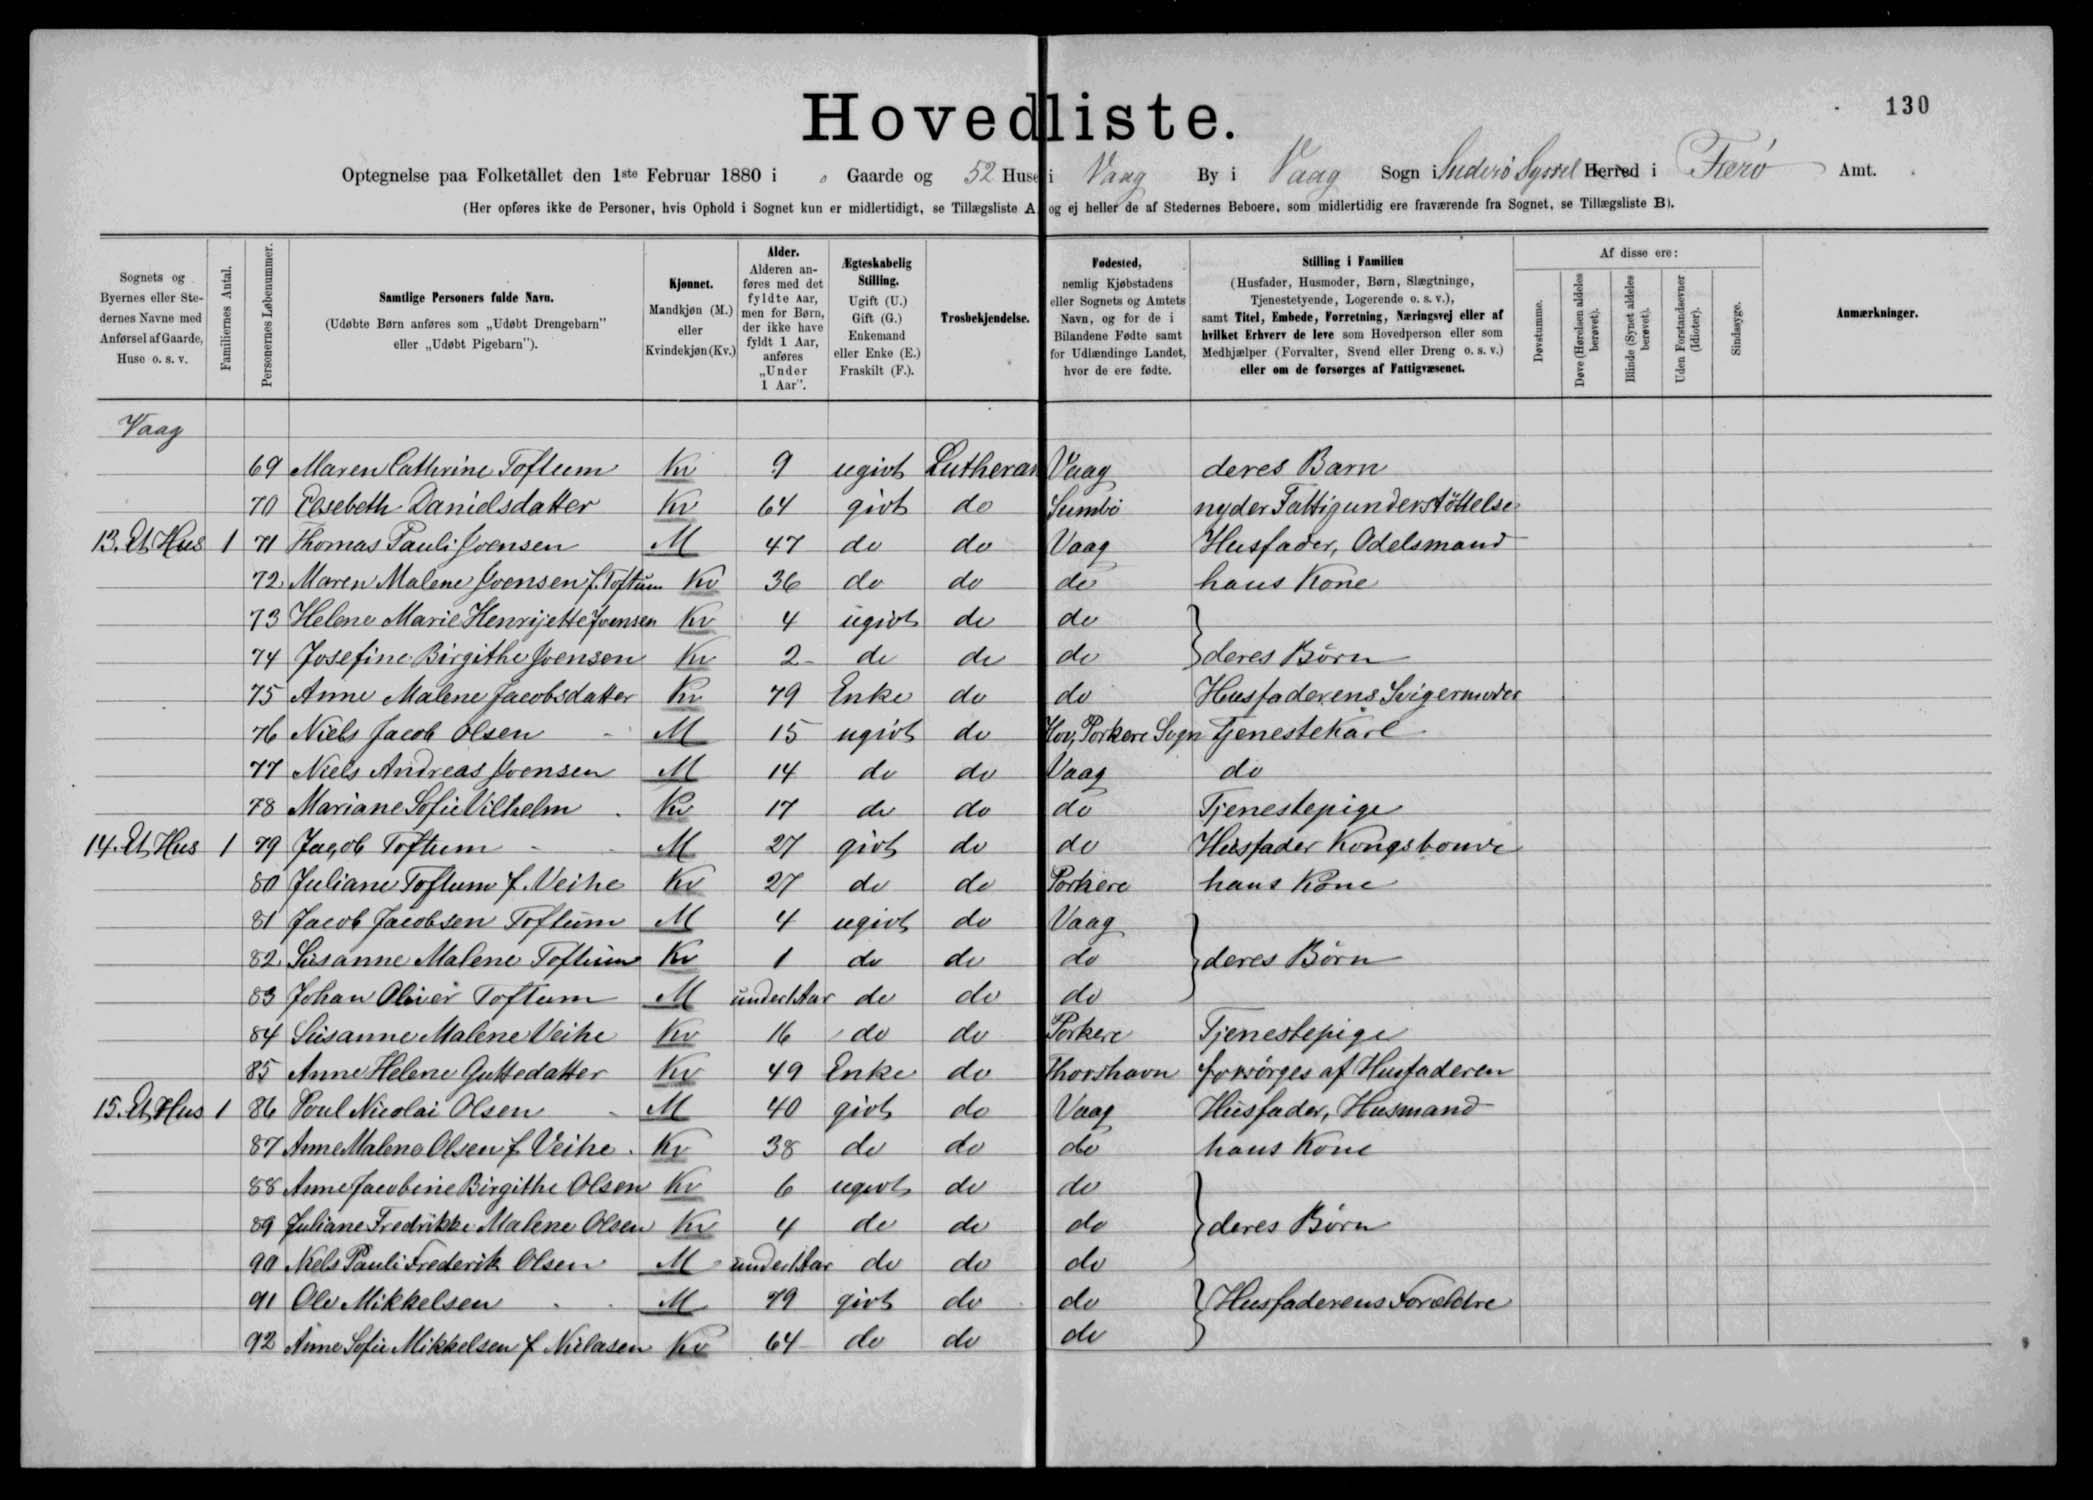 Hovedliste.
130
Optegnelse paa Folketallet den 1ste Februar 1880 i 0 Gaarde og 52 Huse i Vaag By i Vaag Sogn i Suderö Syssel Herred i Færö Amt.
(Her opføres ikke de Personer, hvis Ophold i Sognet kun er midlertidigt, se Tillægsliste A, og ej heller de af Stedernes Beboere, som midlertidig ere fraværende fra Sognet, se Tillægsliste B).
Sognets og Byernes eller Stedernes Navne med Anførsel af Gaarde, Huse o. s. v.
Familiernes Antal.
Personernes Løbenummer.
Samtlige Personers fulde Navn.
(Udøbte Børn anføres som „Udøbt Drengebarn" eller „Udøbt Pigebarn").
Kjønnet.
Mandkjøn (M.) eller Kvindekjøn (Kv.)
Alder.
Alderen anføres med det fyldte Aar, men for Børn, der ikke have fyldt 1 Aar, anføres „Under 1 Aar".
Ægteskabelig Stilling.
Ugift (U.) Gift (G.) Enkemand eller Enke (E.) Fraskilt (F.).
Trosbekjendelse.
Fødested,
nemlig Kjøbstadens eller Sognets og Amtets Navn, og for de i Bilandene Fødte samt for Udlændinge Landet, hvor de ere fødte.
Stilling i Familien
(Husfader, Husmoder, Børn, Slægtninge, Tjenestetyende, Logerende o. s. v.),
samt Titel, Embede, Forretning, Næringsvej eller af hvilket Erhverv de leve som Hovedperson eller som Medhjælper (Forvalter, Svend eller Dreng o. s. v.) eller om de forsørges af Fattigvæsenet.
Af disse ere:
Døvstumme.
Døve (Hørelsen aldeles berøvet).
Blinde (Synet aldeles berøvet).
Uden Forstandsevner (Idioter).
Sindssyge.
Anmærkninger.
Vaag
69 Maren Cathrine Toftum Kv 9 ugivt Lutheran Vaag deres Barn
70 Elsebeth Danielsdatter Kv 64 givt do Sumbö nyder Fattigunderstöttelse
13. Et Hus 1 71 Thomas Pauli Joensen M 47 do do Vaag Husfader, Odelsmand
72. Maren Malene Joensen f. Toftum Kv 36 do do do hans Kone
73 Helene Marie Henrijette Joensen Kv 4 ugivt do do
74 Josefine Birgithe Joensen Kv 2 do do do } deres Börn
75 Anne Malene Jacobsdatter Kv 79 Enke do do Husfaderens Svigermoder
76 Niels Jacob Olsen M 15 ugivt do Hov, Porkere Sogn Tjenestekarl
77 Niels Andreas Joensen M 14 do do Vaag do
78 Mariane Sofie Vilhelm Kv 17 do do do Tjenestepige
14. Et Hus 1 79 Jacob Toftum M 27 givt do do Husfader Kongsbonde
80 Juliane Toftum f. Veihe Kv 27 do do Porkere hans Kone
81 Jacob Jacobsen Toftum M 4 ugivt do Vaag
82. Susanne Malene Toftum Kv 1 do do do } deres Börn
83 Johan Olivier Toftum M under 1 Aar do do do
84 Susanne Malene Veihe Kv 16 do do Porkere Tjenestepige
85 Anne Helene Guttedatter Kv 49 Enke do Thorshavn forsörges af Husfaderen
15. Et Hus 1 86 Poul Nicolai Olsen M 40 givt do Vaag Husfader, Husmand
87 Anne Malene Olsen f. Veihe Kv 38 do do do hans Kone
88 Anne Jacobine Birgithe Olsen Kv 6 ugivt do do
89 Juliane Fredrikke Malene Olsen Kv 4 do do do } deres Börn
90 Niels Pauli Frederik Olsen M under 1 Aar do do do
91 Ole Mikkelsen M 79 givt do do } Husfaderens Forældre
92 Anne Sofie Mikkelsen f Nielasen Kv 64 do do do